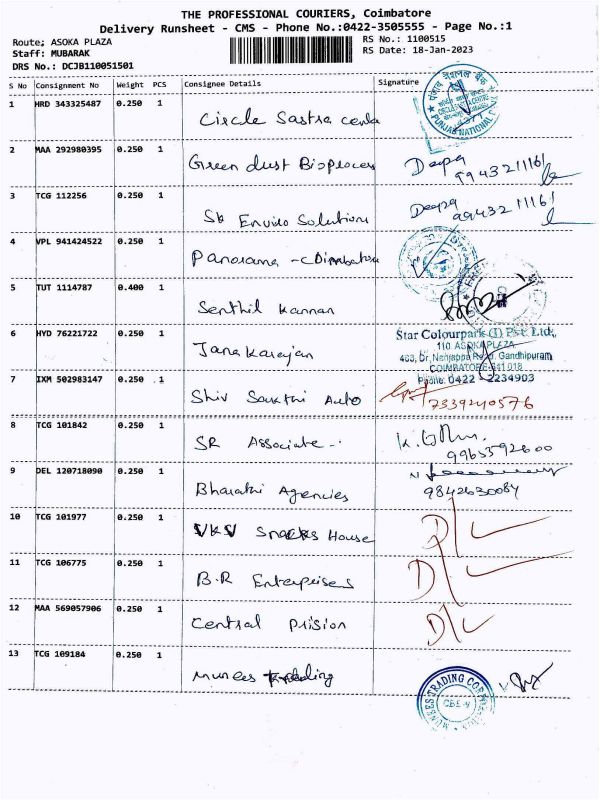 THE PROFESSIONAL COURIERS, Coimbatore
Delivery Runsheet - CMS - Phone No.:0422-3505555 - Page No.:1
Route; ASOKA PLAZA
RS No.: 1100515
Staff: MUBARAK
RS Date: 18-Jan-2023
DRS No.: DCJB110051501
S No Consignment No Weight PCS Consignee Details Signature
1 HRD 343325487 0.250 1 Circle Sastra cente
PUNJAB NATIONAL
2 MAA 292980395 0.250 1 Green dust Bioproces Deepa 9943211161
3 TCG 112256 0.250 1 Sb Enviro Solutions Deepa 9943211161
4 VPL 941424522 0.250 1 Panorama - Coimbatore
5 TUT 1114787 0.400 1 Senthil Kannan
6 HYD 76221722 0.250 1 Janakarajan
Star Colourpark (I) Pvt. Ltd.,
110, ASOKA PLAZA
463, Dr, Nanjappa Road, Gandhipuram
COIMBATORE-641 018
Phone: 0422 - 2234903
7 IXM 502983147 0.250 1 Shiv Sakthi Auto 7339240576
8 TCG 101842 0.250 1 SR Associate 9965592600
9 DEL 120718090 0.250 1 Bharathi Agencies 9842630084
10 TCG 101977 0.250 1 VKV Snacks House D/L
11 TCG 106775 0.250 1 B.R Enterprises D/L
12 MAA 569057906 0.250 1 Central Prision D/L
13 TCG 109184 0.250 1 Munees Trading
MUNEES TRADING CORPORATION